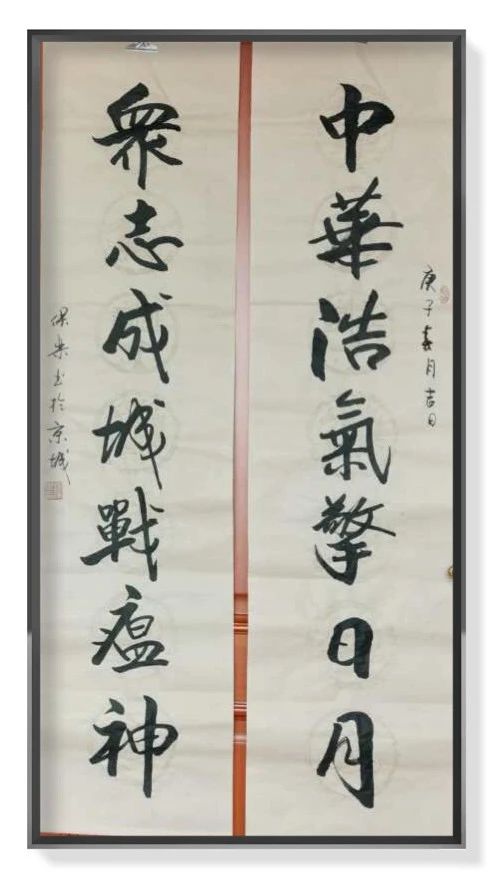 中華浩氣擎日月
庚子春月吉日
衆志成城戰瘟神
保樂書於京城